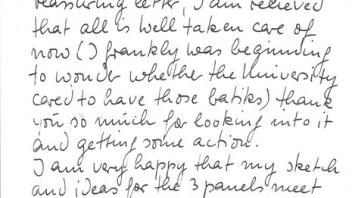 reassuring letter, I am relieved
that all is well taken care of
now (I frankly was beginning
to wonder whether the University
cared to have those batiks) thank
you so much for looking into it
and getting some action.
I am very happy that my sketch
and ideas for the 3 panels meet